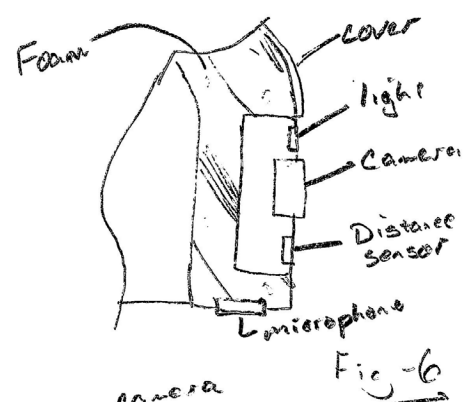 Foam
cover
light
Camera
Distance
sensor
microphone
Fig-6
camera